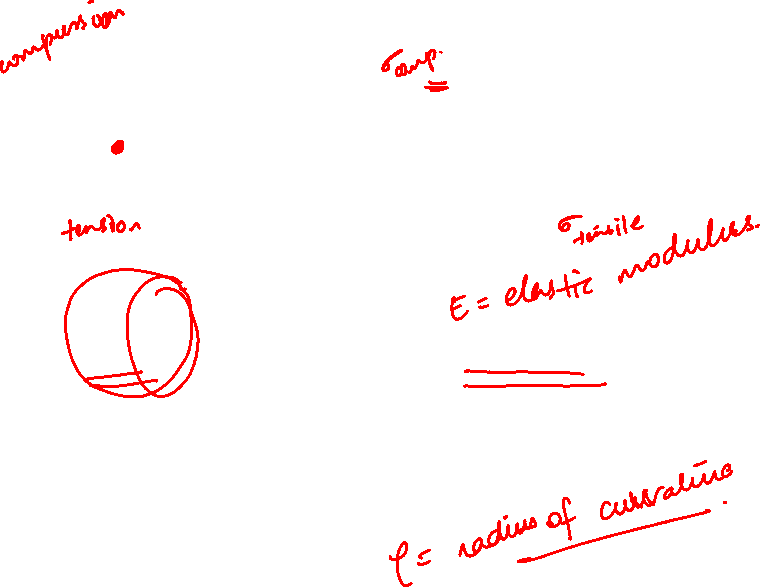 compression
σcomp.
tension
σtensile
E = elastic modulus.
ρ = radius of curvature